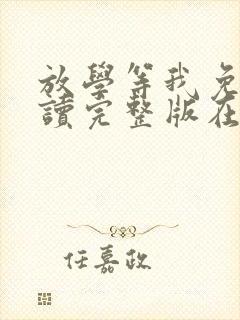 放學等我免
讀完整版在
任嘉政